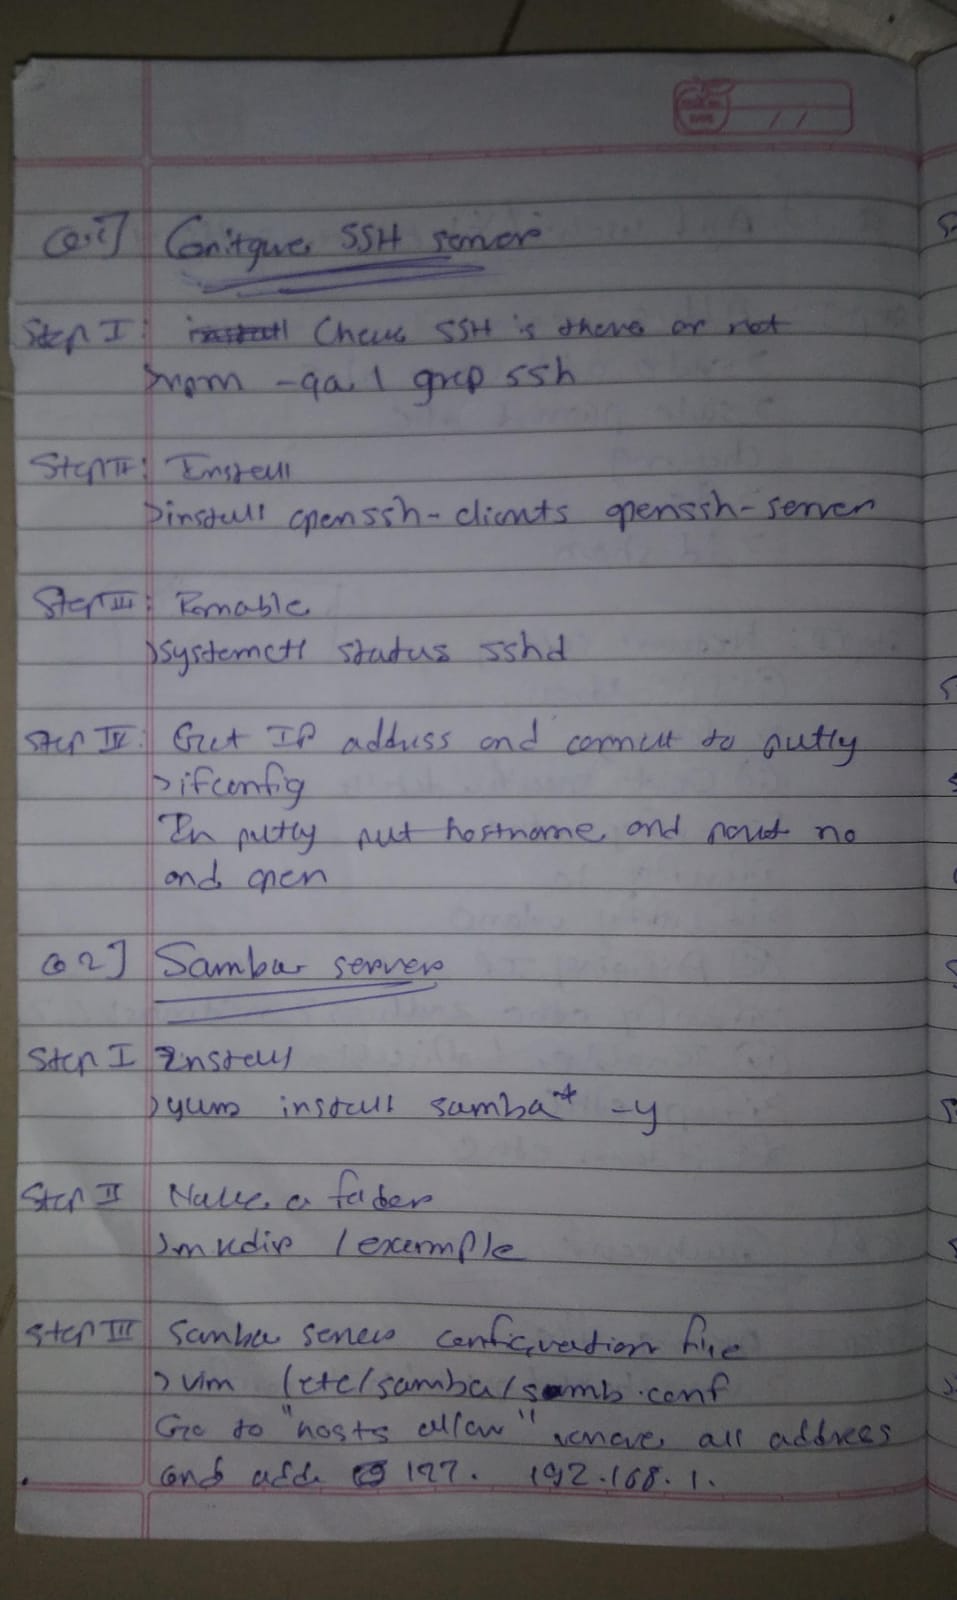 Q.1] Configure SSH server
Step I: Check SSH is there or not
>rpm -qa | grep ssh
Step II: Install
>install openssh-clients openssh-server
Step III: Enable
>systemctl status sshd
Step IV: Get IP address and connect to putty
>ifconfig
In putty put hostname and port no
and open
Q2] Samba server
Step I Install
>yum install samba* -y
Step II Make a folder
>mkdir /example
Step III Samba server configuration file
>vim /etc/samba/smb.conf
Go to "hosts allow" remove all address
and add 127. 192.168.1.